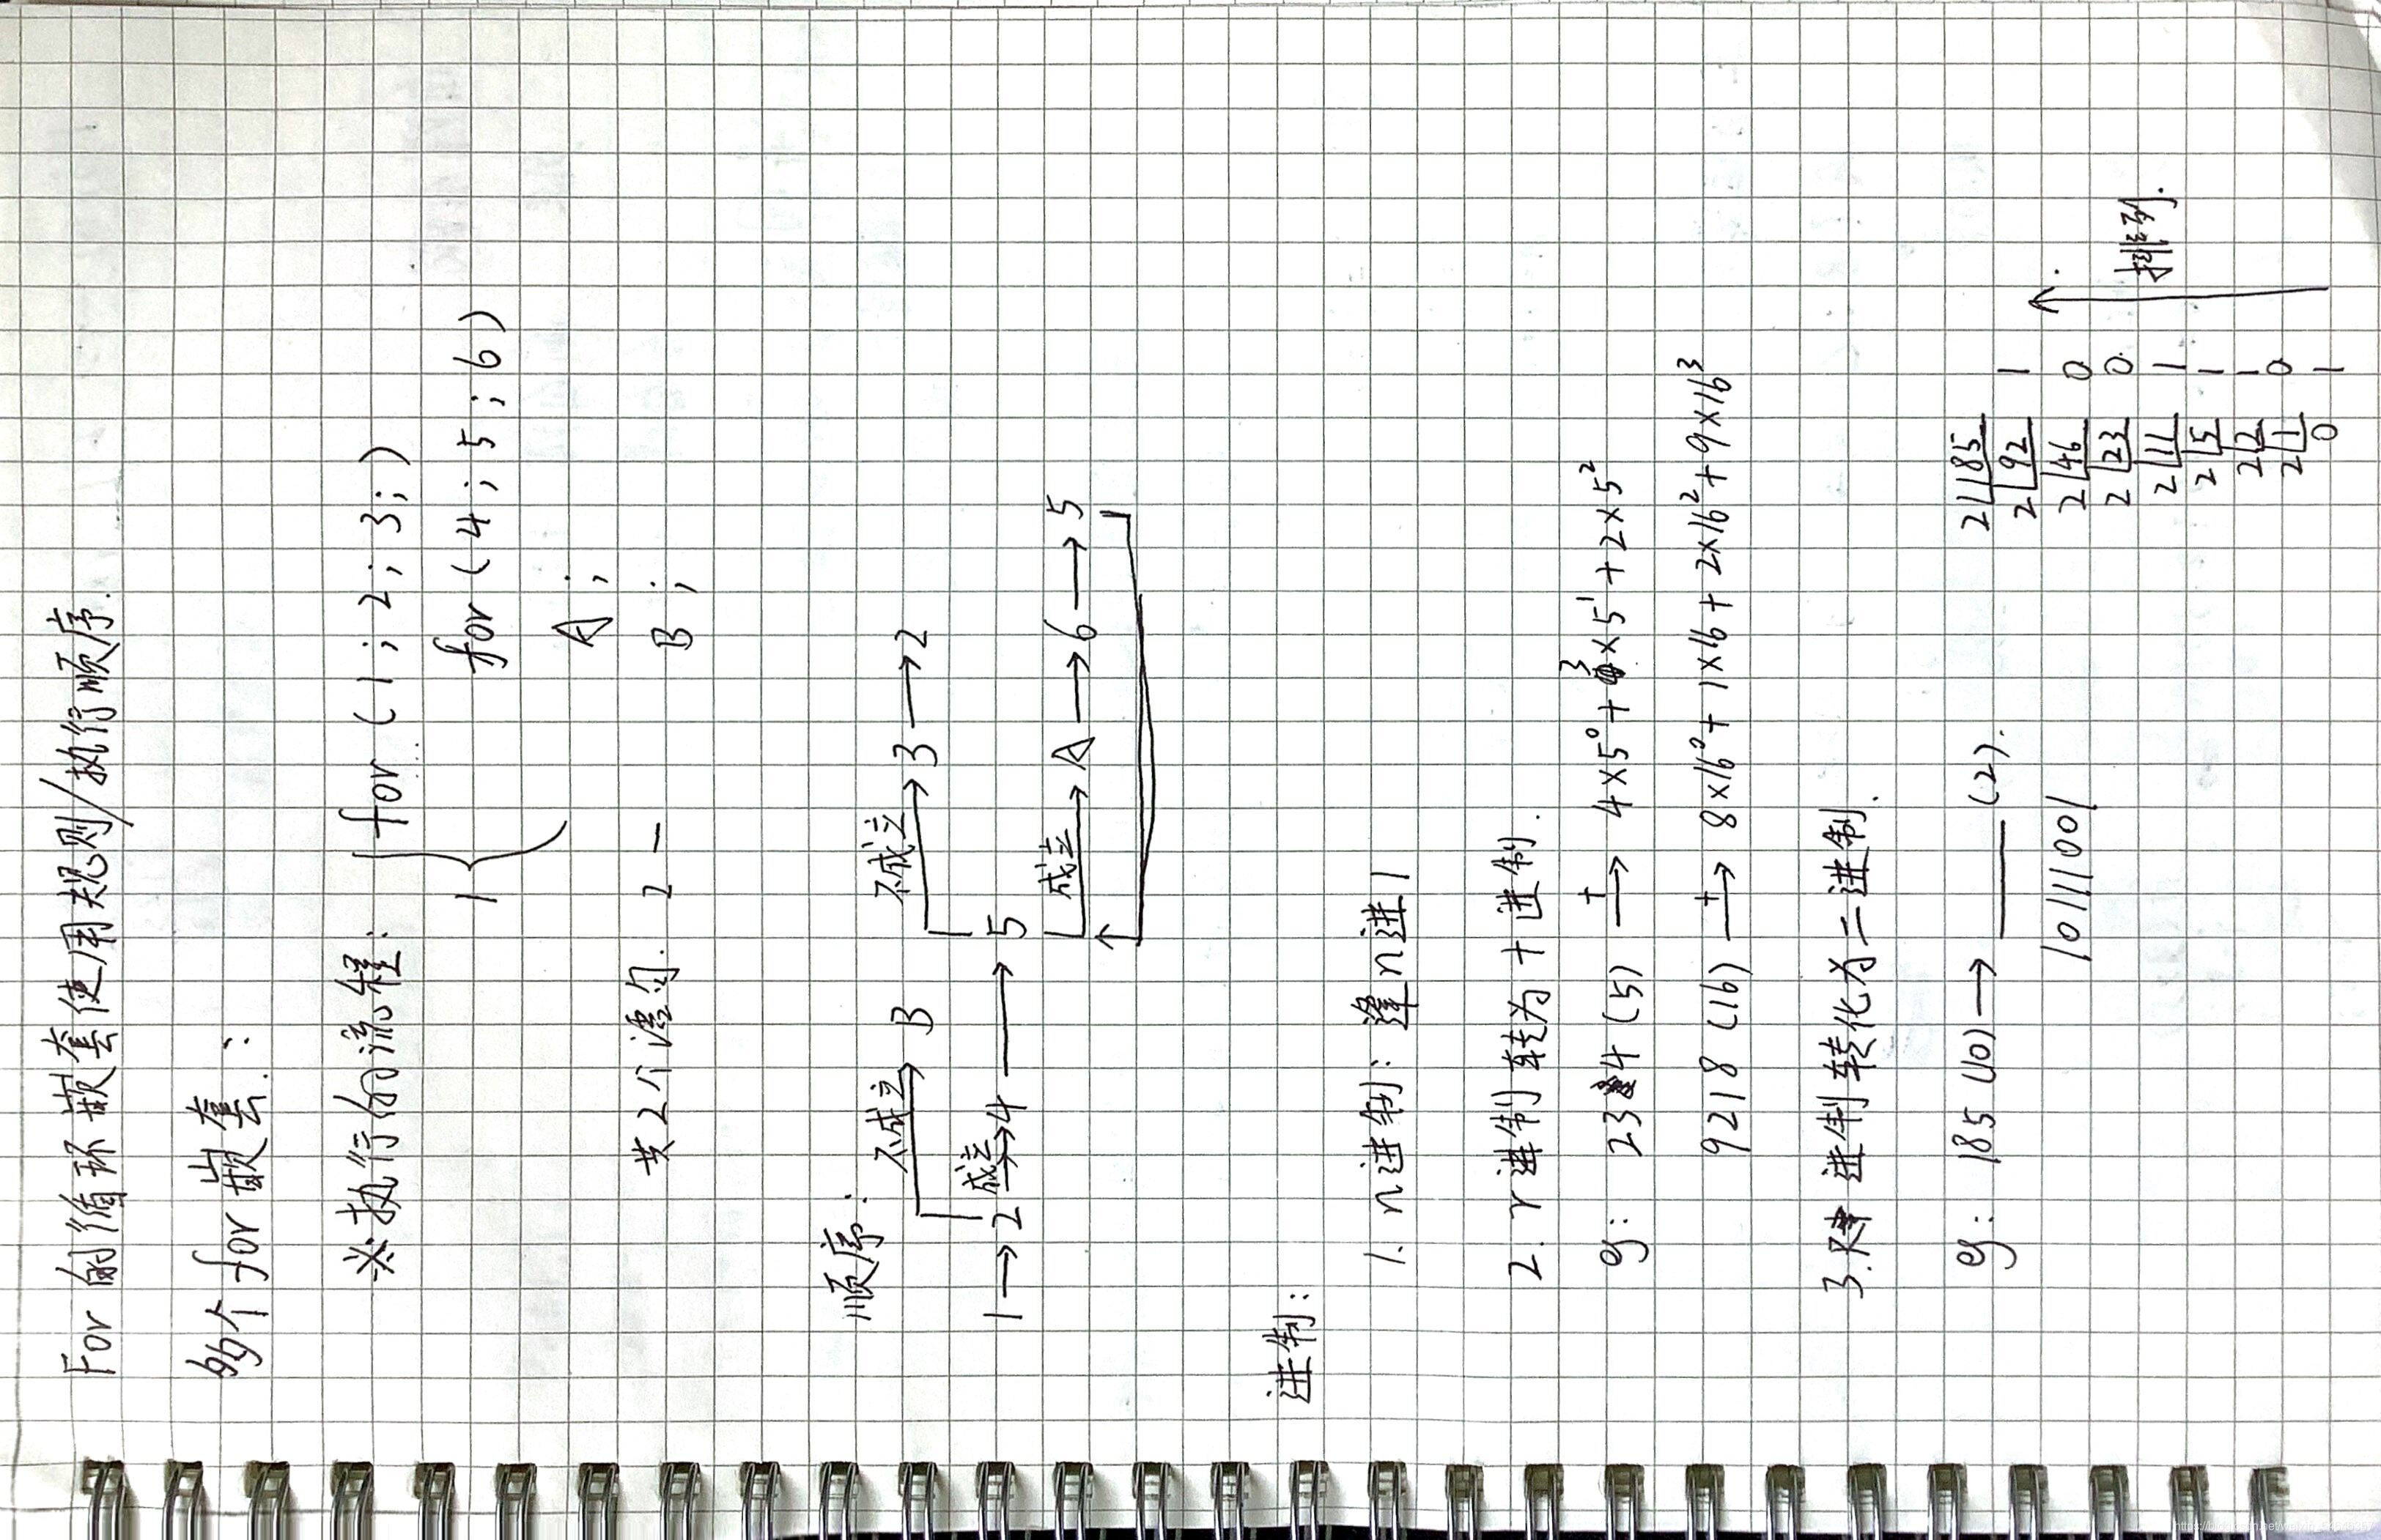 For 的循环嵌套使用规则/执行顺序.
多个 for 嵌套:
※执行的流程:
1 for (1;2;3;)
for (4;5;6)
A;
共2个语句. 2 — B;
顺序:
不成立 B 不成立 3→2
1→2 成立 4→5
成立 A→6→5
进制:
1. n进制: 逢n进1
2. r进制转为十进制.
eg: 234 (5) → 4×5⁰+3×5¹+2×5²
9218 (16) → 8×16⁰+1×16+2×16²+9×16³
3. 进制转化为二进制.
eg: 185 (10) → —— (2).
10111001
2 185
2 92 1
2 46 0
2 23 0
2 11 1
2 5 1
2 2 1
2 1 0
0 1
排列.